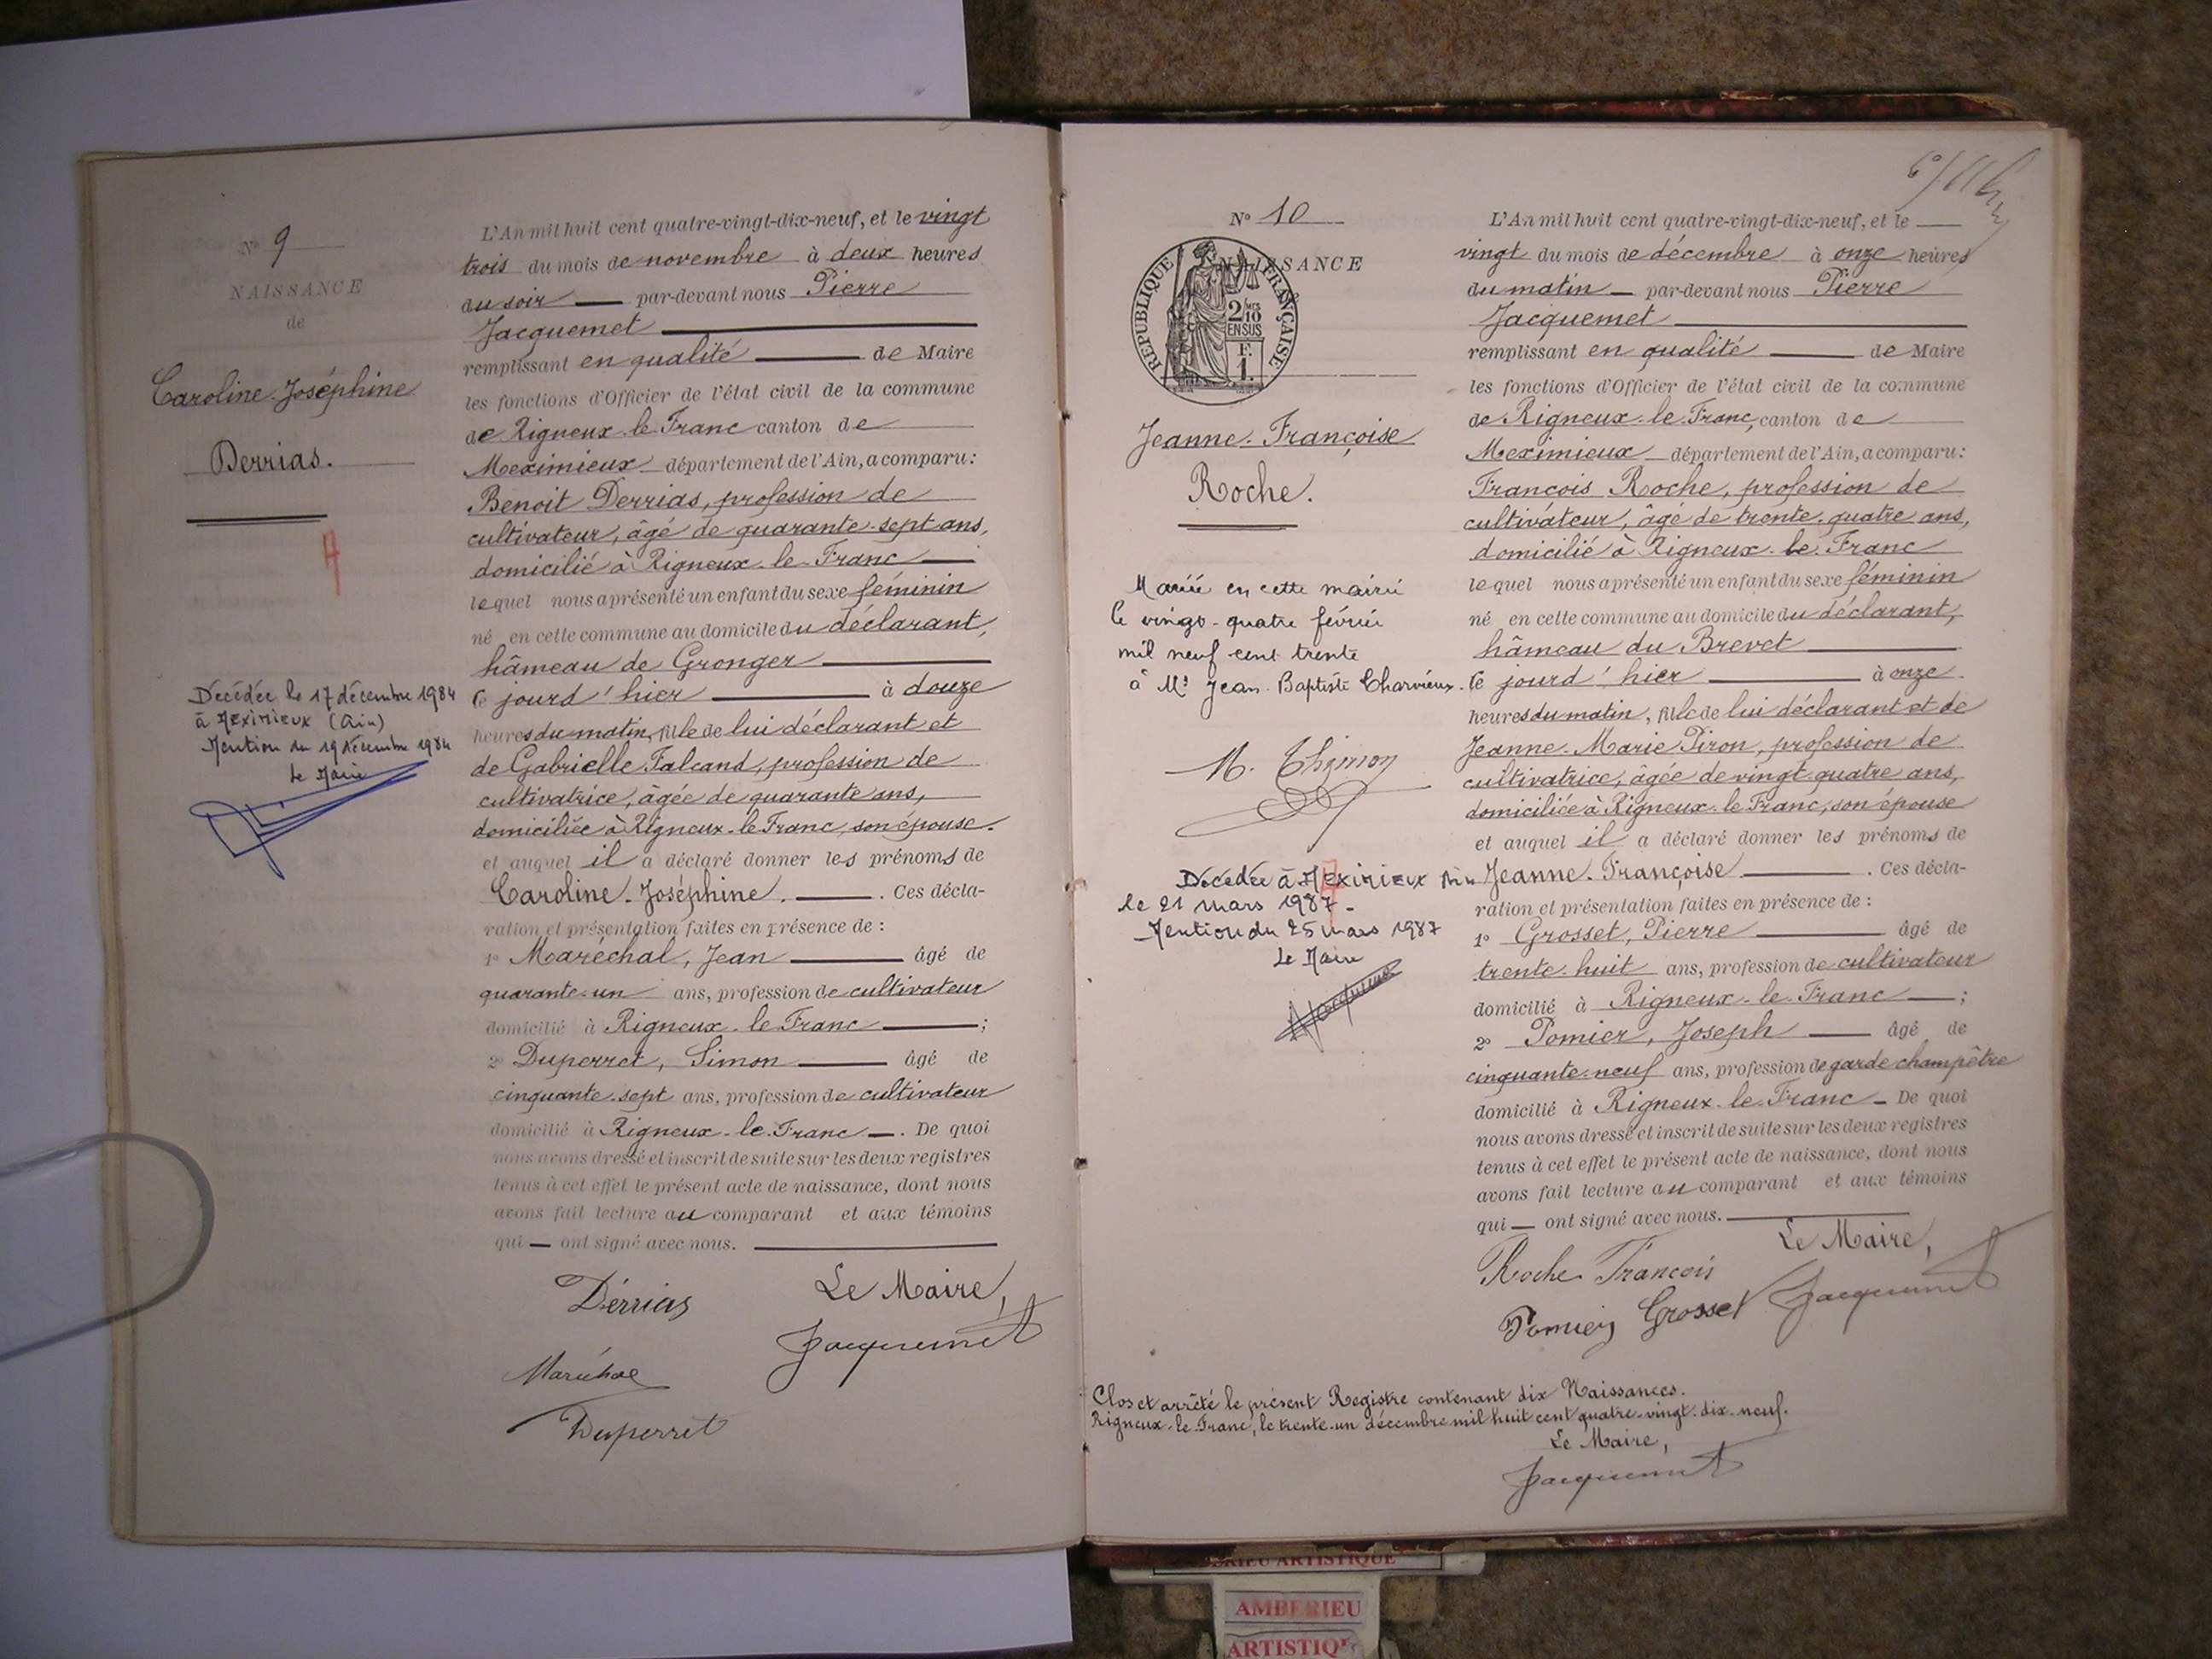 Nº 9
NAISSANCE
de
Caroline-Joséphine
Derrias.
4
Décédée le 17 décembre 1984
à MEXIMIEUX (Ain)
Mention du 19 décembre 1984
Le Maire
L'An mil huit cent quatre-vingt-dix-neuf, et le vingt
trois du mois de novembre à deux heures
du soir par-devant nous Pierre
Jacquemet
remplissant en qualité de Maire
les fonctions d'Officier de l'état civil de la commune
de Rigneux-le-Franc canton de
Meximieux département de l'Ain, a comparu:
Benoit Derrias, profession de
cultivateur, âgé de quarante-sept ans,
domicilié à Rigneux-le-Franc
lequel nous a présenté un enfant du sexe féminin
né en cette commune au domicile du déclarant,
hâmeau de Gronger
le jourd'hier à douze
heures du matin, fille de lui déclarant et
de Gabrielle Falcand, profession de
cultivatrice, âgée de quarante ans,
domiciliée à Rigneux-le-Franc, son épouse.
et auquel il a déclaré donner les prénoms de
Caroline-Joséphine. Ces décla-
ration et présentation faites en présence de :
1º Maréchal, Jean âgé de
quarante-un ans, profession de cultivateur
domicilié à Rigneux-le-Franc ;
2º Duperret, Simon âgé de
cinquante-sept ans, profession de cultivateur
domicilié à Rigneux-le-Franc. De quoi
nous avons dressé et inscrit de suite sur les deux registres
tenus à cet effet le présent acte de naissance, dont nous
avons fait lecture au comparant et aux témoins
qui ont signé avec nous.
Dérrias
Le Maire,
Jacquemet
Maréchal
Duperret
Nº 10
NAISSANCE
REPUBLIQUE FRANÇAISE
2/10 EN SUS
F. 1.
Jeanne-Françoise
Roche.
Mariée en cette mairie
le vingt-quatre février
mil neuf cent trente
à Mr Jean-Baptiste Charvieux.
M. Thimon
Décédée à MEXIMIEUX Ain
le 21 mars 1987.
Mention du 25 mars 1987
Le Maire
L'An mil huit cent quatre-vingt-dix-neuf, et le
vingt du mois de décembre à onze heures
du matin par-devant nous Pierre
Jacquemet
remplissant en qualité de Maire
les fonctions d'Officier de l'état civil de la commune
de Rigneux-le-Franc, canton de
Meximieux département de l'Ain, a comparu:
François Roche, profession de
cultivateur, âgé de trente-quatre ans,
domicilié à Rigneux-le-Franc
lequel nous a présenté un enfant du sexe féminin
né en cette commune au domicile du déclarant,
hâmeau du Brevet
le jourd'hier à onze
heures du matin, fille de lui déclarant et de
Jeanne-Marie Piron, profession de
cultivatrice, âgée de vingt-quatre ans,
domiciliée à Rigneux-le-Franc, son épouse
et auquel il a déclaré donner les prénoms de
Jeanne-Françoise. Ces décla-
ration et présentation faites en présence de :
1º Grosset, Pierre âgé de
trente-huit ans, profession de cultivateur
domicilié à Rigneux-le-Franc ;
2º Pomier, Joseph âgé de
cinquante-neuf ans, profession de garde champêtre
domicilié à Rigneux-le-Franc De quoi
nous avons dressé et inscrit de suite sur les deux registres
tenus à cet effet le présent acte de naissance, dont nous
avons fait lecture au comparant et aux témoins
qui ont signé avec nous.
Le Maire,
Roche François
Pomier Grosset Jacquemet
Clos et arrêté le présent Registre contenant dix Naissances.
Rigneux-le-Franc, le trente-un décembre mil huit cent quatre-vingt-dix-neuf.
Le Maire,
Jacquemet
ARTISTIQUE
AMBERIEU
ARTISTIQ